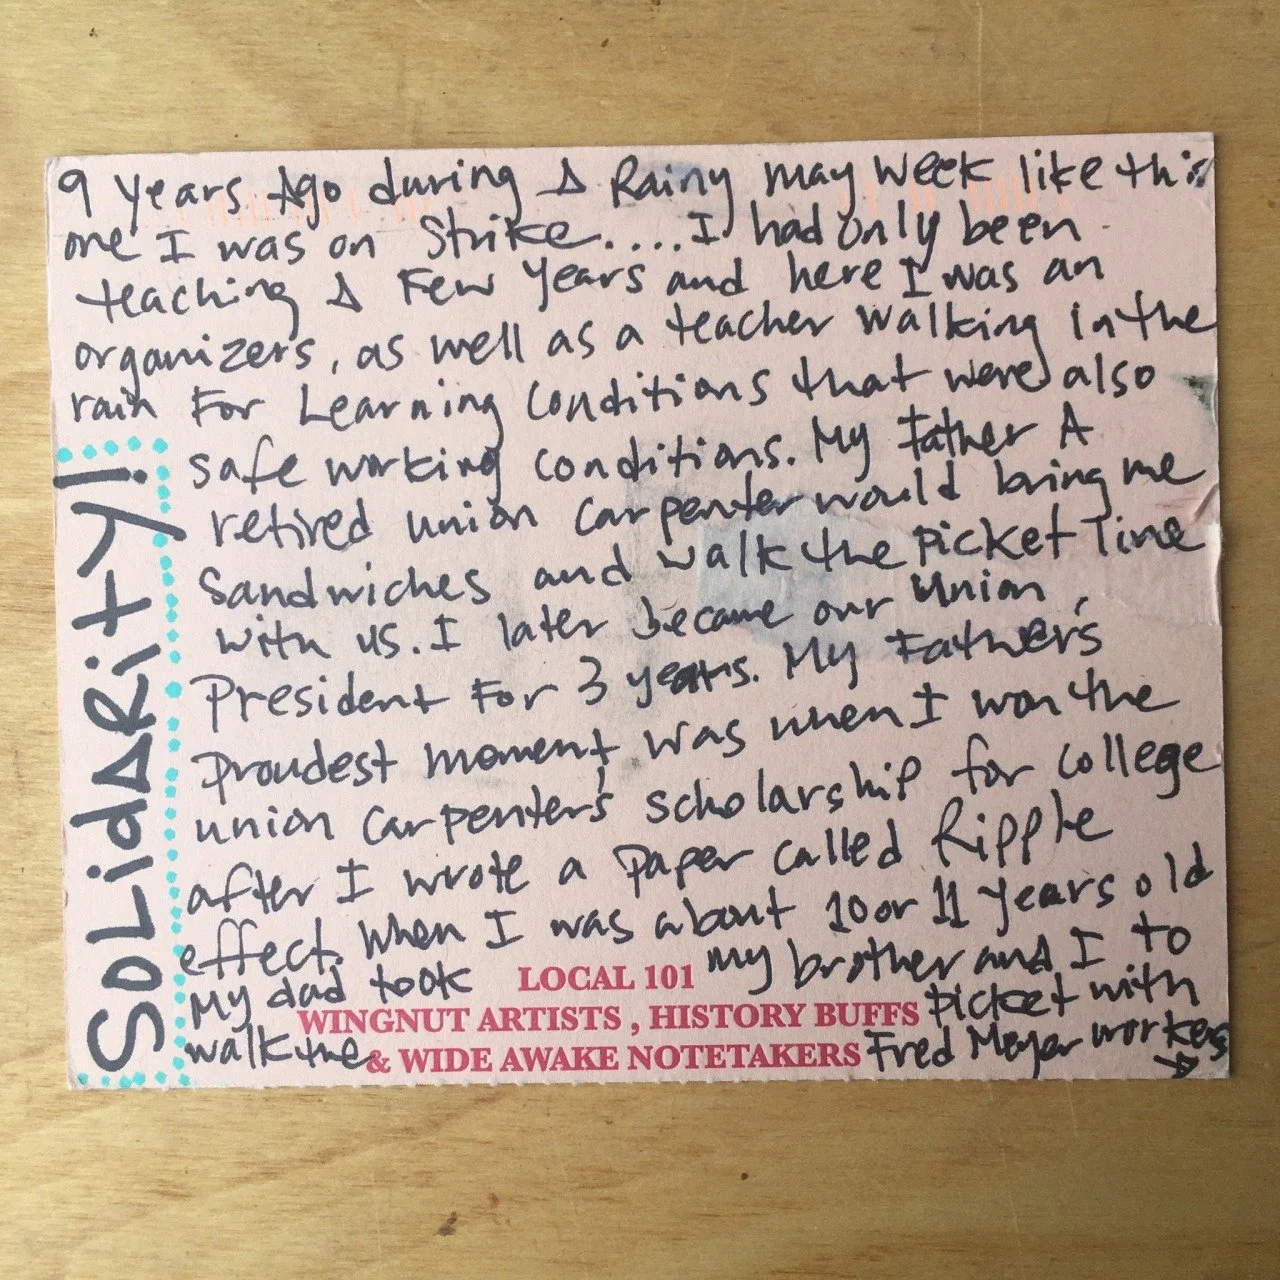 9 years Ago during A Rainy may week like this
one I was on Strike.....I had only been
teaching A Few Years and here I was an
organizers, as well as a teacher walking in the
rain For Learning conditions that were also
safe working conditions. My Father A
retired union carpenter would bring me
sandwiches and walk the picket line
with us. I later became our Union
President For 3 years. My Fathers
proudest moment was when I won the
union carpenter's scholarship for college
after I wrote a paper called Ripple
effect. When I was about 10 or 11 years old
My dad took my brother and I to
walk the picket with
Fred Meyer workers
SOLidARiTy!
LOCAL 101
WINGNUT ARTISTS , HISTORY BUFFS
& WIDE AWAKE NOTETAKERS